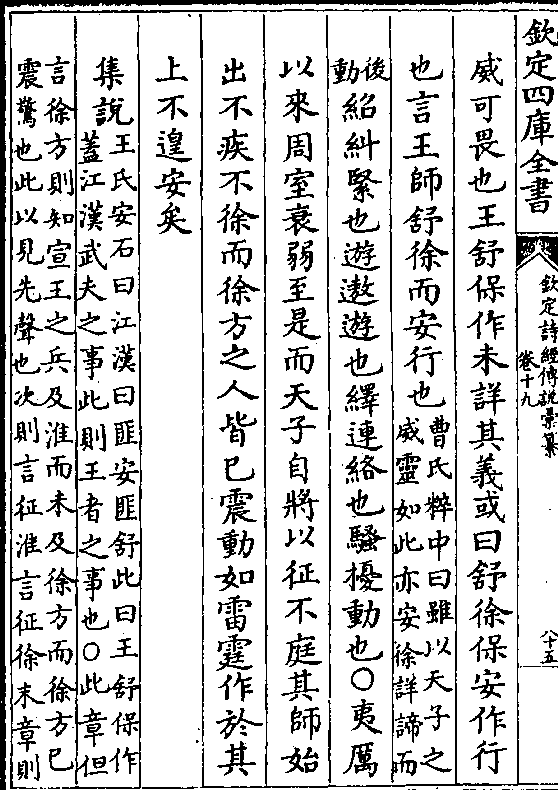 欽定四庫全書
欽定詩經傳說彙纂
卷十九
八十五
威可畏也王舒保作未詳其義或曰舒徐保安作行
也言王師舒徐而安行也曹氏粹中曰雖以天子之
威靈如此亦安徐詳諦而
後
動紹糾緊也遊遨遊也繹連絡也騷擾動也○夷厲
以來周室衰弱至是而天子自將以征不庭其師始
出不疾不徐而徐方之人皆已震動如雷霆作於其
上不遑安矣
集說王氏安石曰江漢曰匪安匪舒此曰王舒保作
蓋江漢武夫之事此則王者之事也○此章但
言徐方則知宣王之兵及淮而未及徐方而徐方已
震驚也此以見先聲也次則言征淮言征徐末章則